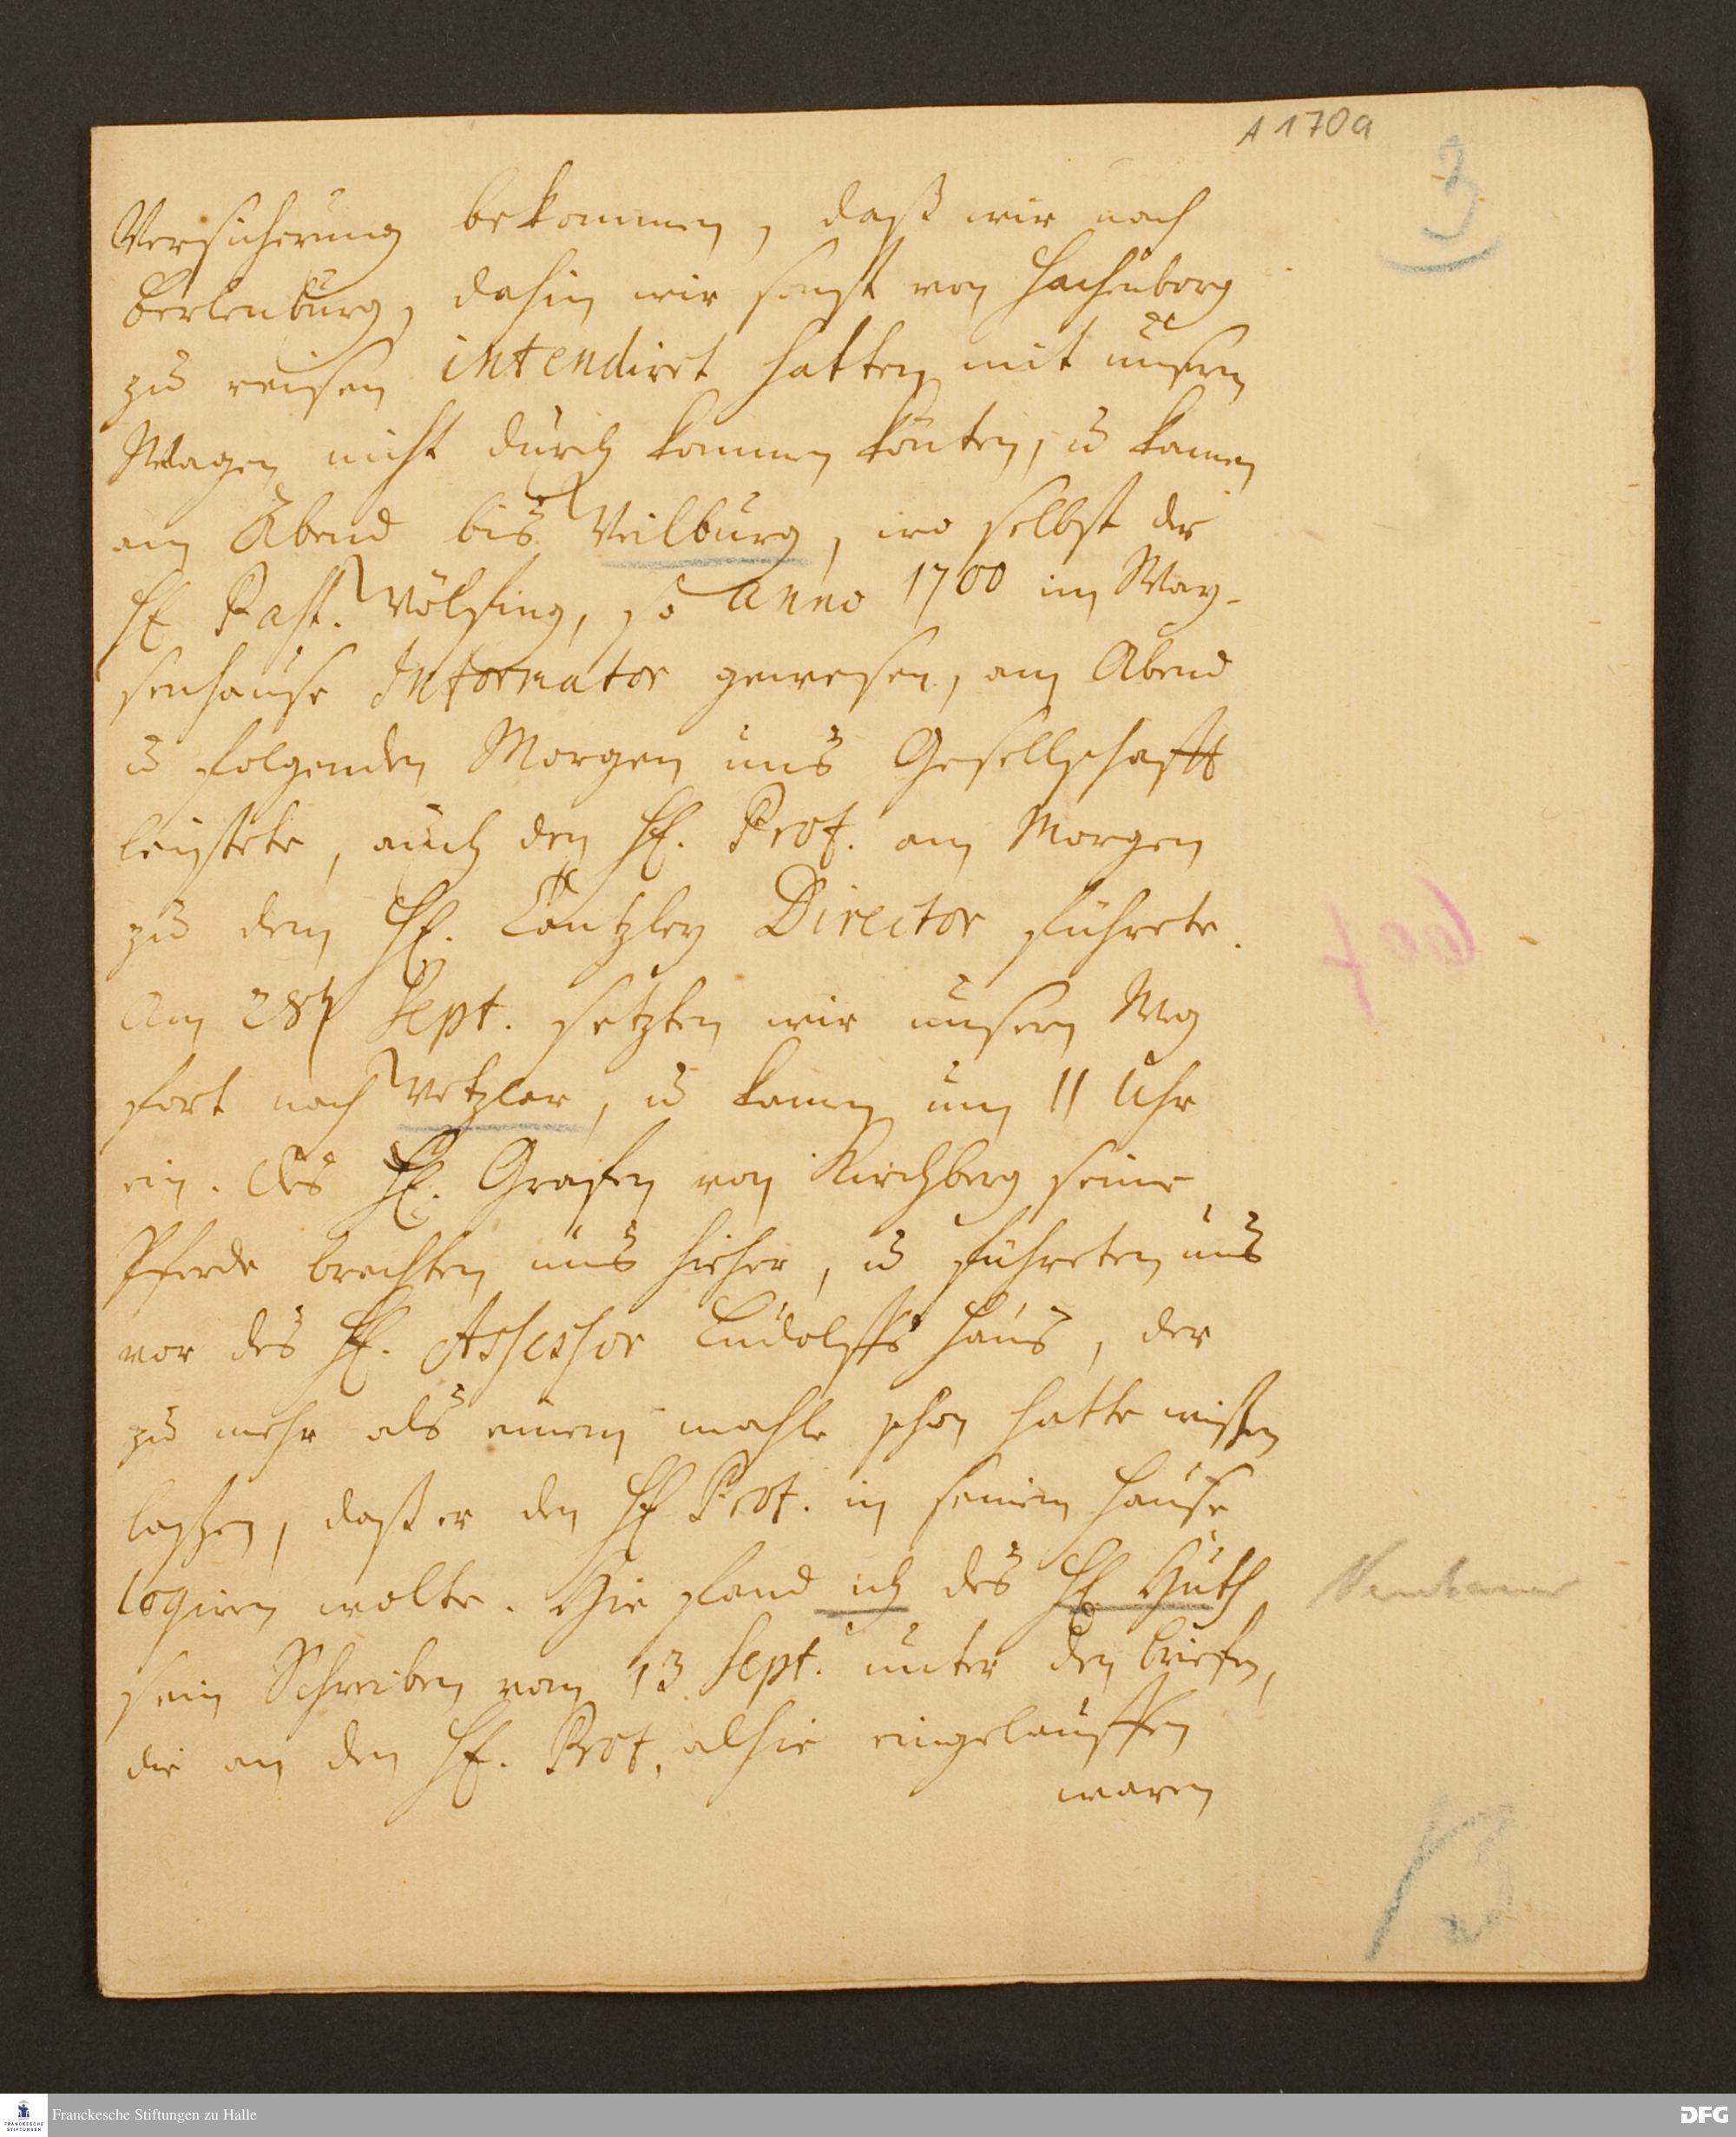 A 170a
3
Versicherung bekommen, daß wir nach
Berlenburg, dahin wir sonst von Hachenborg
zu reisen intendirt hatten mit unsern
Wagen nicht durch kommen könten, u kamen
am Abend bis Veilburg, wo selbst der
H. Past. Völsing, so Anno 1700 im Way-
senhause Informator gewesen, am Abend
u folgenden Morgen uns Gesellschafft
leistete, auch den H. Prof. am Morgen
zu dem H. Cantzley Director führete.
Am 28 Sept. setzten wir unsern Weg
fort nach Vetzlar, u kamen um 11 Uhr
ein. Des H. Grafen von Kirchberg seine
Pferde brachten uns hieher, u führeten uns
vor des H. Assessor Ludolffs Haus, der
zu mehr als einem mahle schon hatte wißen
laßen, daß er den H. Prof. in seinem Hause
logiren wolte. Hie fand ich des H. Huth
sein Schreiben vom 13 Sept. unter den briefen,
die an den H. Prof. alhie eingelauffen
waren
Franckesche Stiftungen zu Halle
FRANCKESCHE STIFTUNGEN
DFG